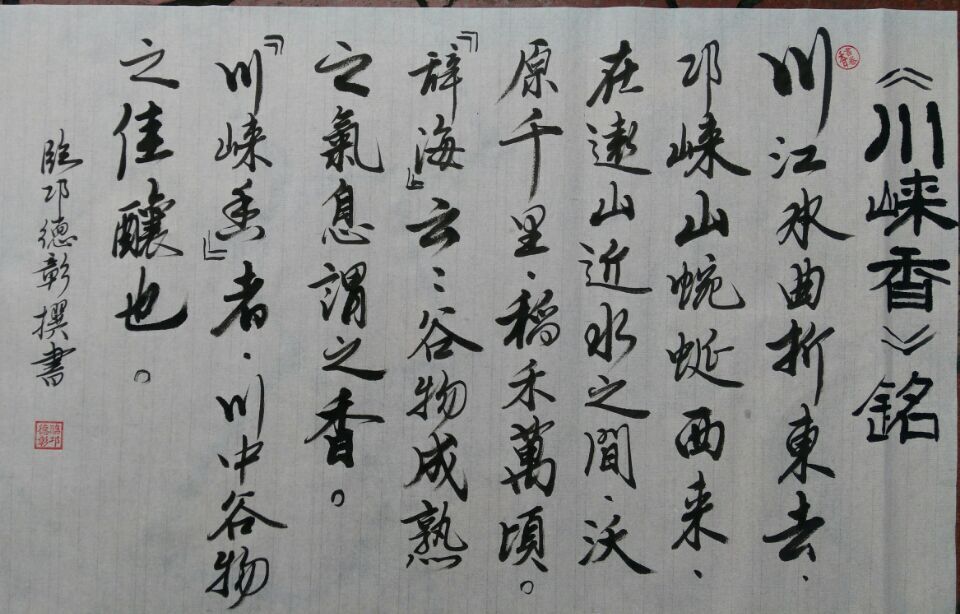 《川崃香》銘
川江水曲折東去·
邛崃山蜿蜒西来·
在遠山近水之間·沃
原千里·稻禾萬頃。
『辞海』云:谷物成熟
之氣息謂之香。
『川崃香』者·川中谷物
之佳釀也。
臨邛德彰撰書
臨邛德彰